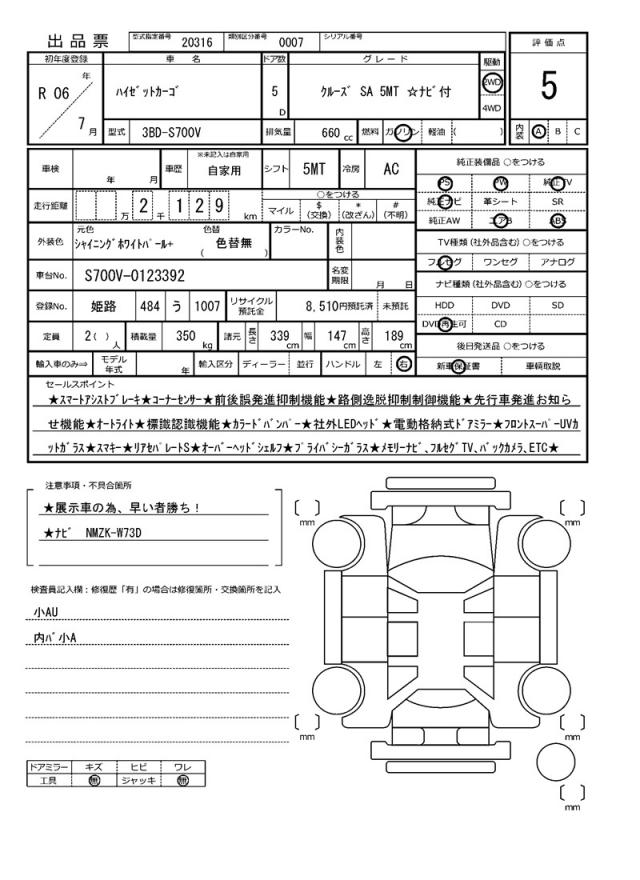 出品票 型式指定番号 20316 類別区分番号 0007 シリアル番号
評価点
5
内装 A B C
初年度登録 車名 ドア数 グレード 駆動
R 06 年 7 月 ﾊｲｾﾞｯﾄｶｰｺﾞ 5 D ｸﾙｰｽﾞ SA 5MT ☆ﾅﾋﾞ付 2WD
4WD
型式 3BD-S700V 排気量 660 cc 燃料 ガソリン 軽油 ( )
車検 年 月 車歴 ※未記入は自家用 自家用 シフト 5MT 冷房 AC
走行距離 万 2 千 1 2 9 km ○をつける
マイル $ (交換) * (改ざん) # (不明)
外装色 元色 ｼｬｲﾆﾝｸﾞﾎﾜｲﾄﾊﾟｰﾙ+ 色替 ( 色替無 ) カラーNo. 内装色
車台No. S700V-0123392 名変期限 月 日
登録No. 姫路 484 う 1007 リサイクル預託金 8,510円預託済 未預託
定員 2( ) 人 積載量 350 kg 諸元 長さ 339 cm 幅 147 cm 高さ 189 cm
輸入車のみ⇒ モデル年式 年 輸入区分 ディーラー 並行 ハンドル 左 右
純正装備品 ○をつける
PS PW 純正TV
純正ナビ 革シート SR
純正AW エアB ABS
TV種類 (社外品含む) ○をつける
フルセグ ワンセグ アナログ
ナビ種類 (社外品含む) ○をつける
HDD DVD SD
DVD再生可 CD
後日発送品 ○をつける
新車保証書 車輌取説
セールスポイント
★ｽﾏｰﾄｱｼｽﾄﾌﾞﾚｰｷ★ｺｰﾅｰｾﾝｻｰ★前後誤発進抑制機能★路側逸脱抑制制御機能★先行車発進お知ら
せ機能★ｵｰﾄﾗｲﾄ★標識認識機能★ｶﾗｰﾄﾞﾊﾞﾝﾊﾟｰ★社外LEDﾍｯﾄﾞ★電動格納式ﾄﾞｱﾐﾗｰ★ﾌﾛﾝﾄｽｰﾊﾟｰUVｶ
ｯﾄｶﾞﾗｽ★ｽﾏｷｰ★ﾘｱｾﾊﾟﾚｰﾄS★ｵｰﾊﾞｰﾍｯﾄﾞｼｪﾙﾌ★ﾌﾟﾗｲﾊﾞｼｰｶﾞﾗｽ★ﾒﾓﾘｰﾅﾋﾞ､ﾌﾙｾｸﾞTV､ﾊﾞｯｸｶﾒﾗ､ETC★
注意事項・不具合箇所
★展示車の為、早い者勝ち！
★ﾅﾋﾞ NMZK-W73D
検査員記入欄：修復歴「有」の場合は修復箇所・交換箇所を記入
小AU
内ﾊﾞ小A
ドアミラー キズ ヒビ ワレ
工具 無 ジャッキ 無
[ ] mm
[ ] mm
[ ] mm
[ ] mm
[ ] mm